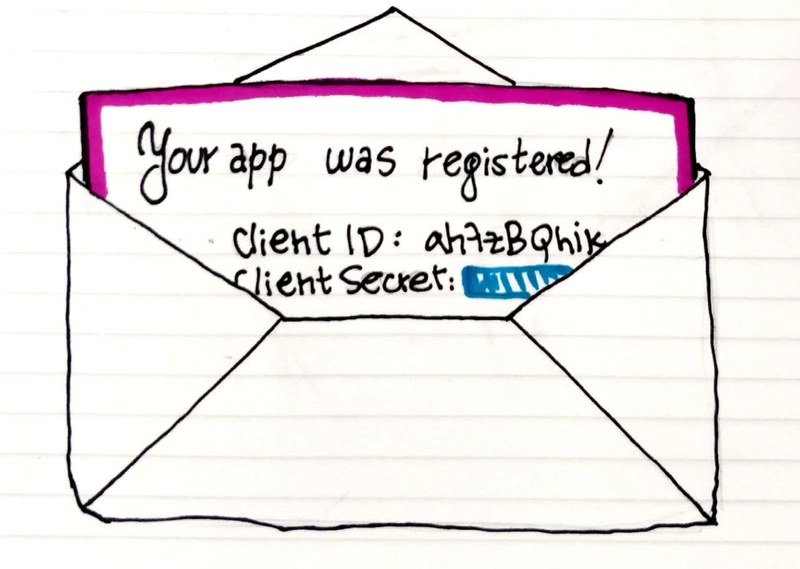 Your app was registered!
Client ID: ah7zBQhik
Client Secret: